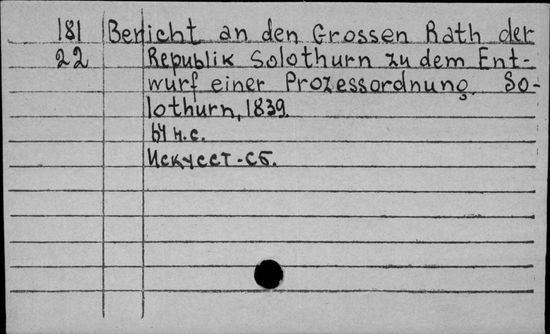 181 Bericht an den Grossen Rath der
22 Republik Solothurn zu dem Ent-
wurf einer Prozessordnung. So-
lothurn, 1839.
64 н.с.
Искусст-Сб.